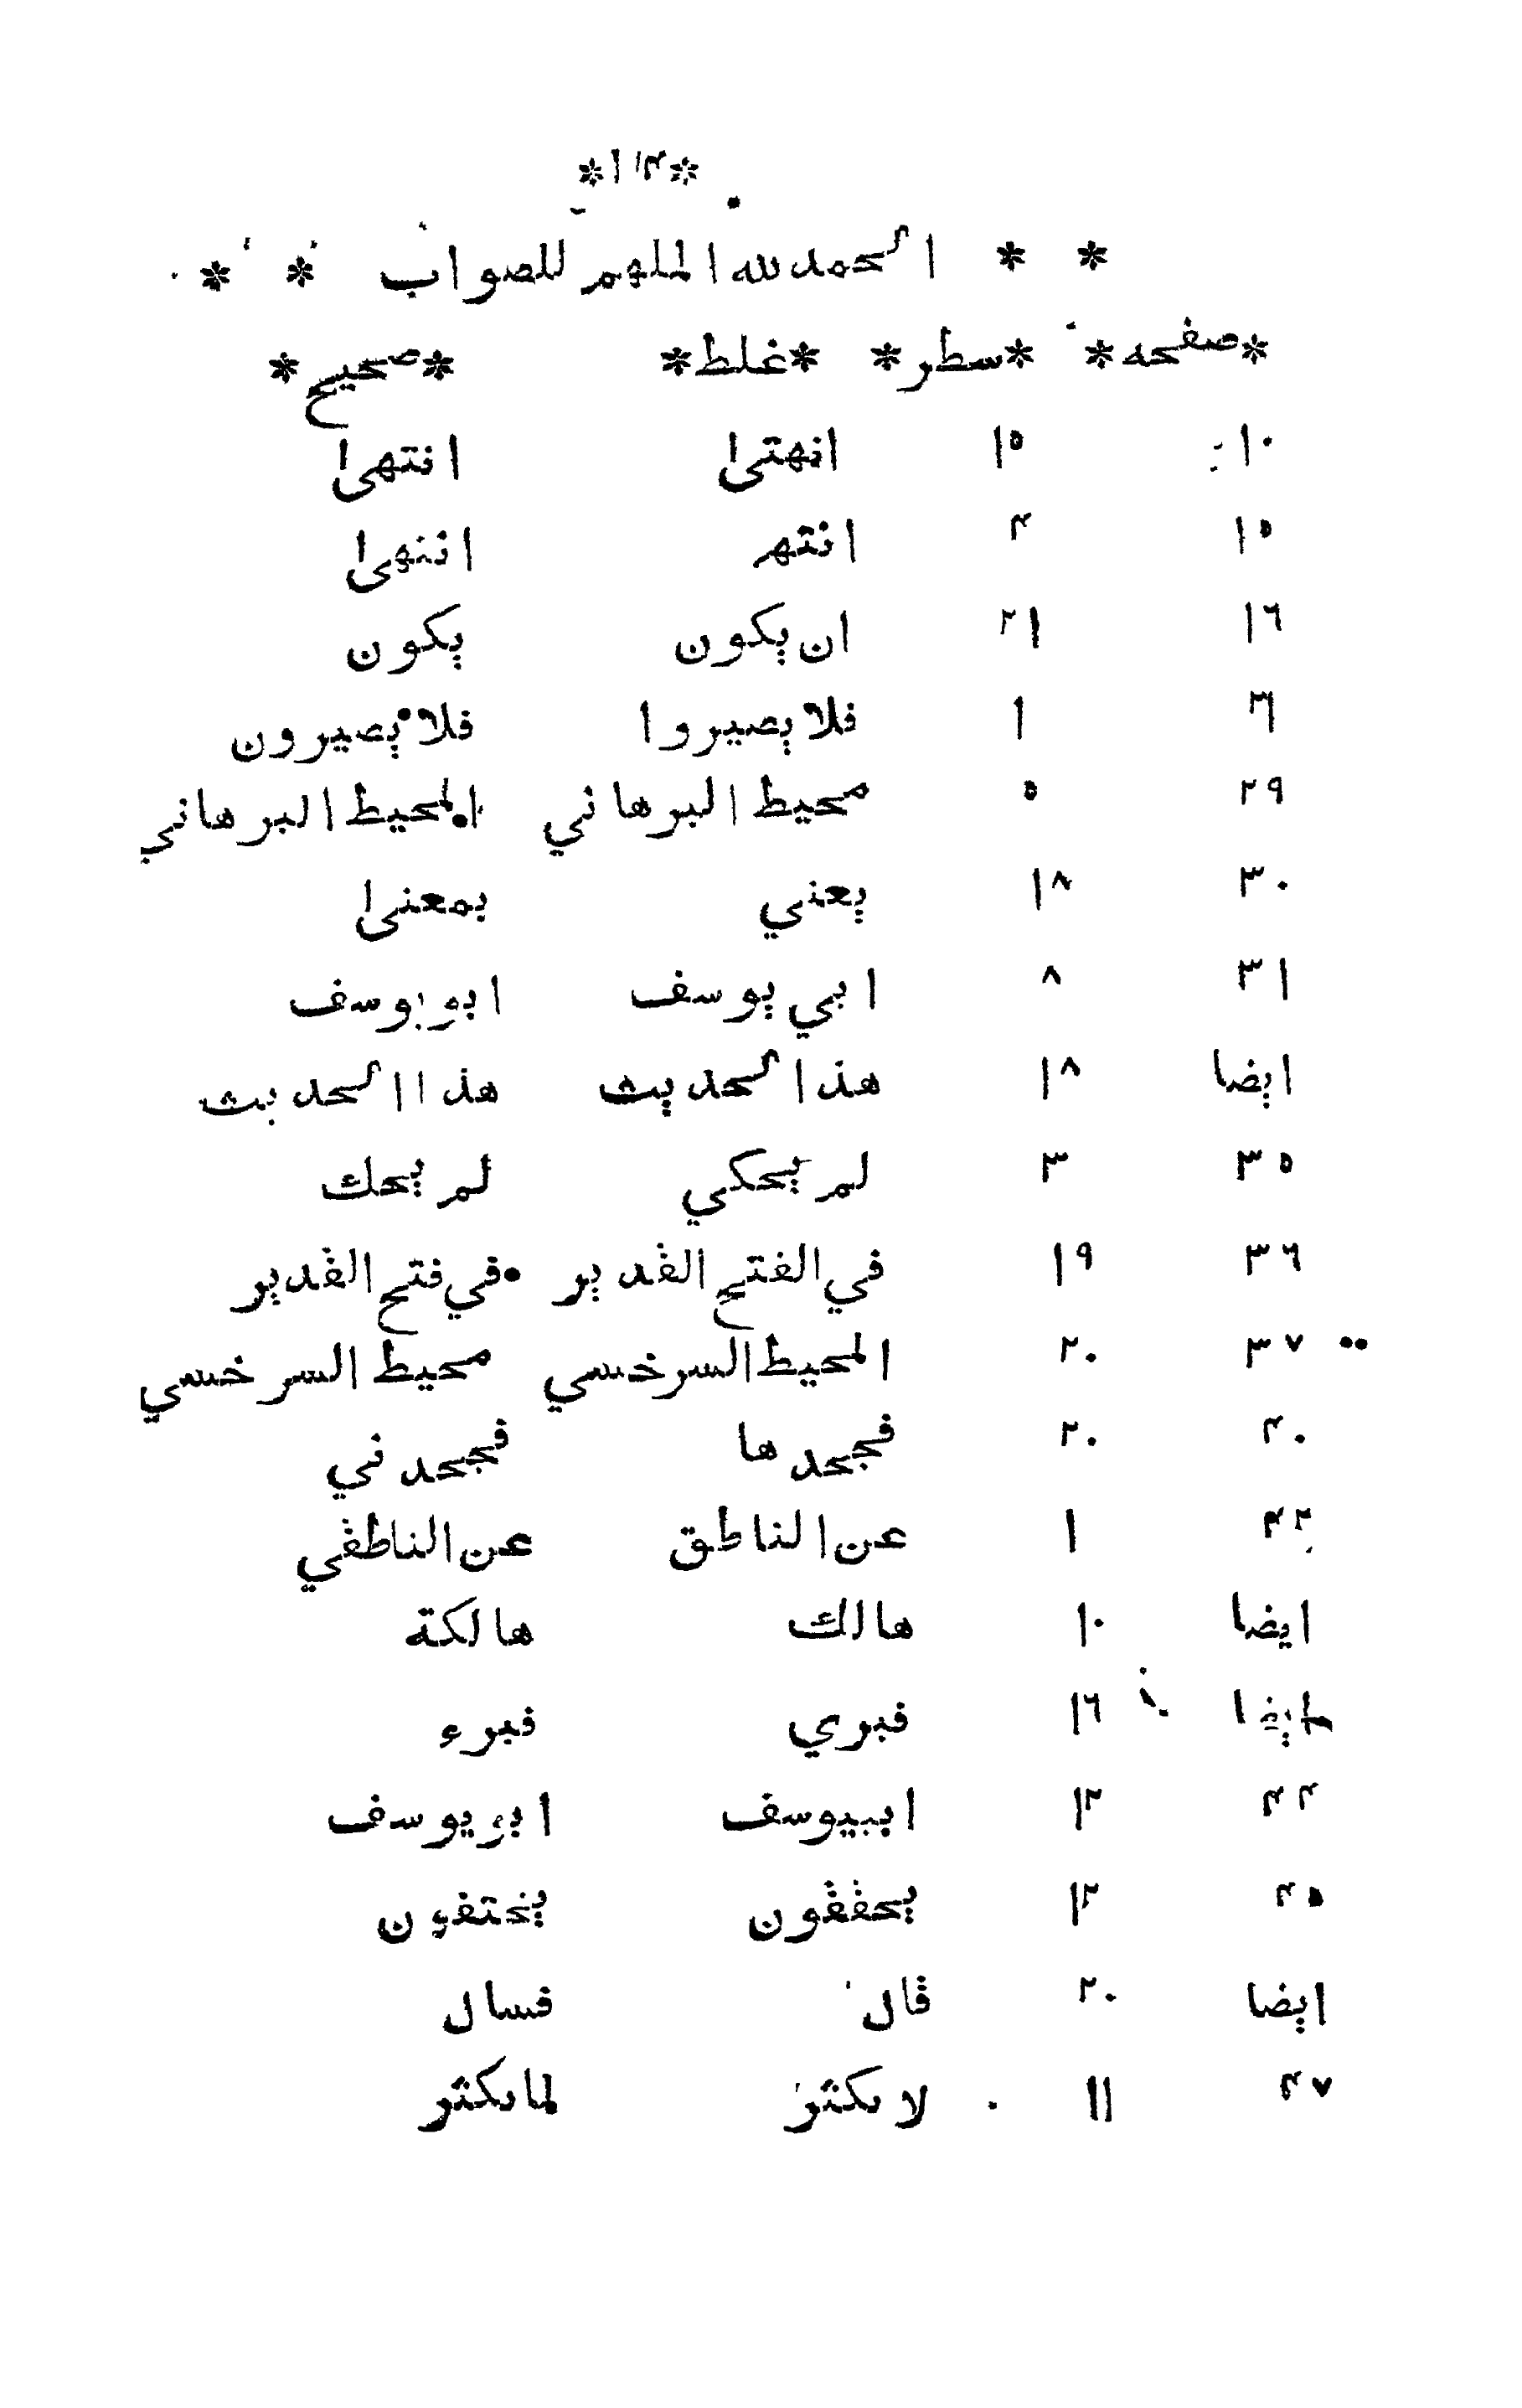 * * الحمد لله الملهم للصواب * *
*صفحه* *سطر* *غلط* *صحيح*
١٠ ١٥ انهتىا انتهىا
١٥ ۴ انتهر انتهىا
١٦ ٢١ ان يكون يكون
١ فلا يصيروا فلا يصيرون
٢٩ ٥ محيط البرهاني المحيط البرهاني
٣٠ ١٨ يعني بمعنىا
٣١ ٨ ابي يوسف ابو يوسف
ايضا ١٨ هذ الحديث هذا الحديث
٣٥ ٣ لم يحكي لم يحك
٣٦ ١٩ في الفتح القدير في فتح القدير
٣٧ ٢٠ المحيط السرخسي محيط السرخسي
۴٠ ٢٠ فجحدها فجحدني
۴٢ ١ عن الناطق عن الناطقي
ايضا ١٠ هالك هالكة
ايضا ١٦ فبري فبرء
۴۴ ١٢ ابييوسف ابويوسف
۴٥ ١٢ يحققون يختفون
ايضا ٢٠ قال فسال
۴٧ ١١ لا يكثر لما يكثر